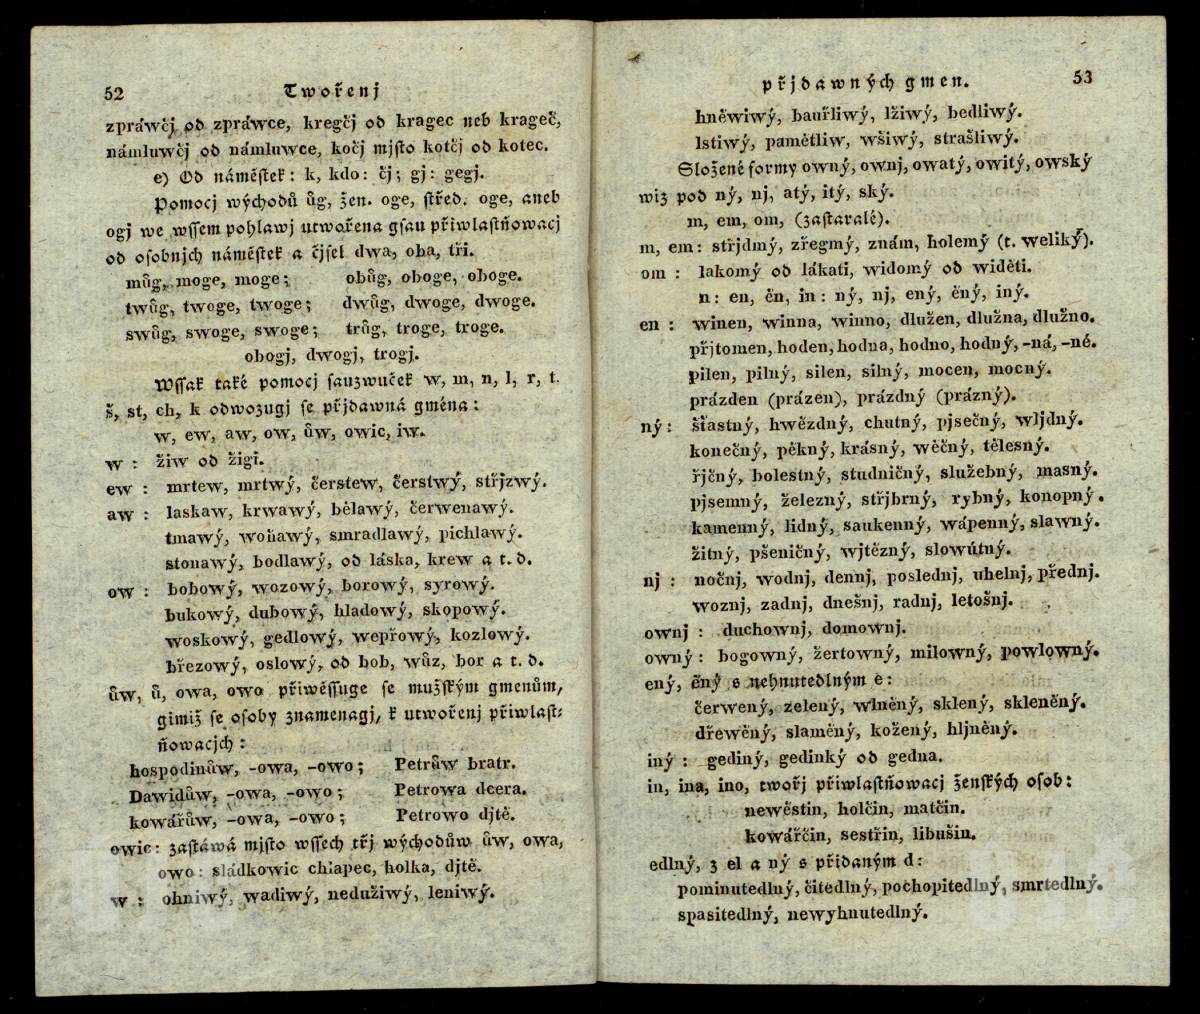 52 Twořenj
zpráwčj od zpráwce, kregčj od kragec neb krageč,
námluwčj od námluwce, kočj mjsto kotčj od kotec.
e) Od náměstek: k, kdo: čj; gj: gegj.
Pomocj wýchodů ůg, žen. oge, střed. oge, aneb
ogj we wssem pohlawj utwořena gsau přiwlastňowacj
od osobnjch náměstek a čjsel dwa, oba, tři.
můg, moge, moge; obůg, oboge, oboge.
twůg, twoge, twoge; dwůg, dwoge, dwoge.
swůg, swoge, swoge; trůg, troge, troge.
obogj, dwogj, trogj.
Wssak také pomocj sauzwuček w, m, n, l, r, t.
š, st, ch, k odwozugj se přjdawná gména:
w, ew, aw, ow, ůw, owic, iw.
w : živ od žigi.
ew : mrtew, mrtwý, čerstew, čerstwý, střjzwý.
aw : laskaw, krwawý, bělawý, čerwenawý.
tmawý, woňawý, smradlawý, pichlawý.
stonawý, bodlawý, od láska, krew a t. d.
ow : bobowý, wozowý, borowý, syrowý.
bukowý, dubowý, hladowý, skopowý.
woskowý, gedlowý, wepřowý, kozlowý.
březowý, oslowý, od bob, wůz, bor a t. d.
ůw, ů, owa, owo přiwěssuge se mužským gmenům,
gimiž se osoby znamenagj, k utwořenj přiwlast-
ňowacjch :
hospodinůw, -owa, -owo; Petrůw bratr.
Dawidůw, -owa, -owo; Petrowa dcera.
kowářůw, -owa, -owo; Petrowo djtě.
owic: zastáwá mjsto wssech třj wýchodůw ůw, owa,
owo: sládkowic chlapec, holka, djtě.
w : ohniwý, wadiwý, nedužiwý, leniwý.
přjdawných gmen. 53
hněwiwý, bauřliwý, lžiwý, bedliwý.
lstiwý, pamětliw, wšiwý, strašliwý.
Složené formy owný, ownj, owatý, owitý, owský
wiz pod ný, nj, atý, itý, ský.
m, em, om, (zastaralé).
m, em: střjdmý, zřegmý, znám, holemý (t. weliký).
om : lakomý od lákati, widomý od widěti.
n: en, ěn, in: ný, nj, ený, ěný, iný.
en : winen, winna, winno, dlužen, dlužna, dlužno.
přjtomen, hoden, hodna, hodno, hodný, -ná, -né.
pilen, pilný, silen, silný, mocen, mocný.
prázden (prázen), prázdný (prázný).
ný : šťastný, hwězdný, chutný, pjsečný, wljdný.
konečný, pěkný, krásný, wěčný, tělesný.
řjčný, bolestný, studničný, služebný, masný.
pjsemný, železný, střjbrný, rybný, konopný.
kamenný, lidný, saukenný, wápenný, slawný.
žitný, pšeničný, wjtězný, slowútný.
nj : nočnj, wodnj, dennj, poslednj, uhelnj, přednj.
woznj, zadnj, dnešnj, radnj, letošnj.
ownj : duchownj, domownj.
owný : bogowný, žertowný, milowný, powlowný.
ený, ěný s nehnutedlným e:
čerwený, zelený, wlněný, sklený, skleněný.
dřewěný, slaměný, kožený, hljněný.
iný : gediný, gedinký od gedna.
in, ina, ino, twořj přiwlastňowacj ženských osob:
newěstin, holčin, matčin.
kowářčin, sestřin, libušin.
edlný, z el a ný s přidaným d:
pominutedlný, čitedlný, pochopitedlný, smrtedlný.
spasitedlný, newyhnutedlný.